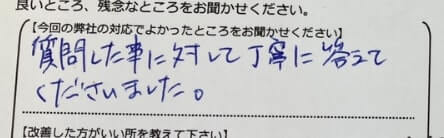 良いところ、残念なところをお聞かせください。
【今回の弊社の対応でよかったところをお聞かせください】
質問した事に対して丁寧に答えて
くださいました。
【改善した方がいい所を教えて下さい】